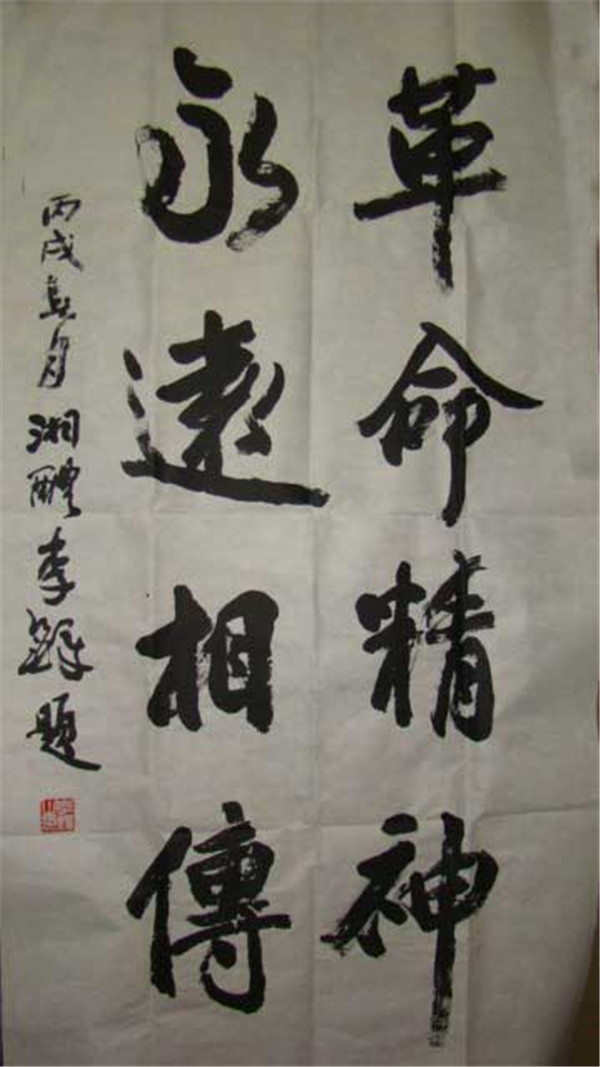 革命精神
永遠相傳
丙戌春月湘醴李鐸題